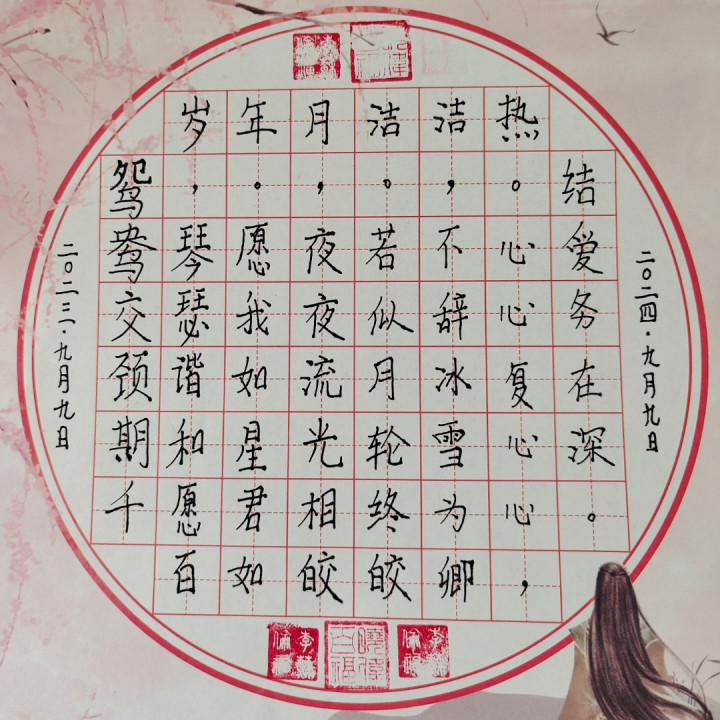 二〇二三·九月九日
鸳鸯交颈期千
岁，琴瑟谐和愿百
年。愿我如星君如
月，夜夜流光相皎
洁。若似月轮终皎
洁，不辞冰雪为卿
热。心心复心心，
结爱务在深。
二〇二四·九月九日